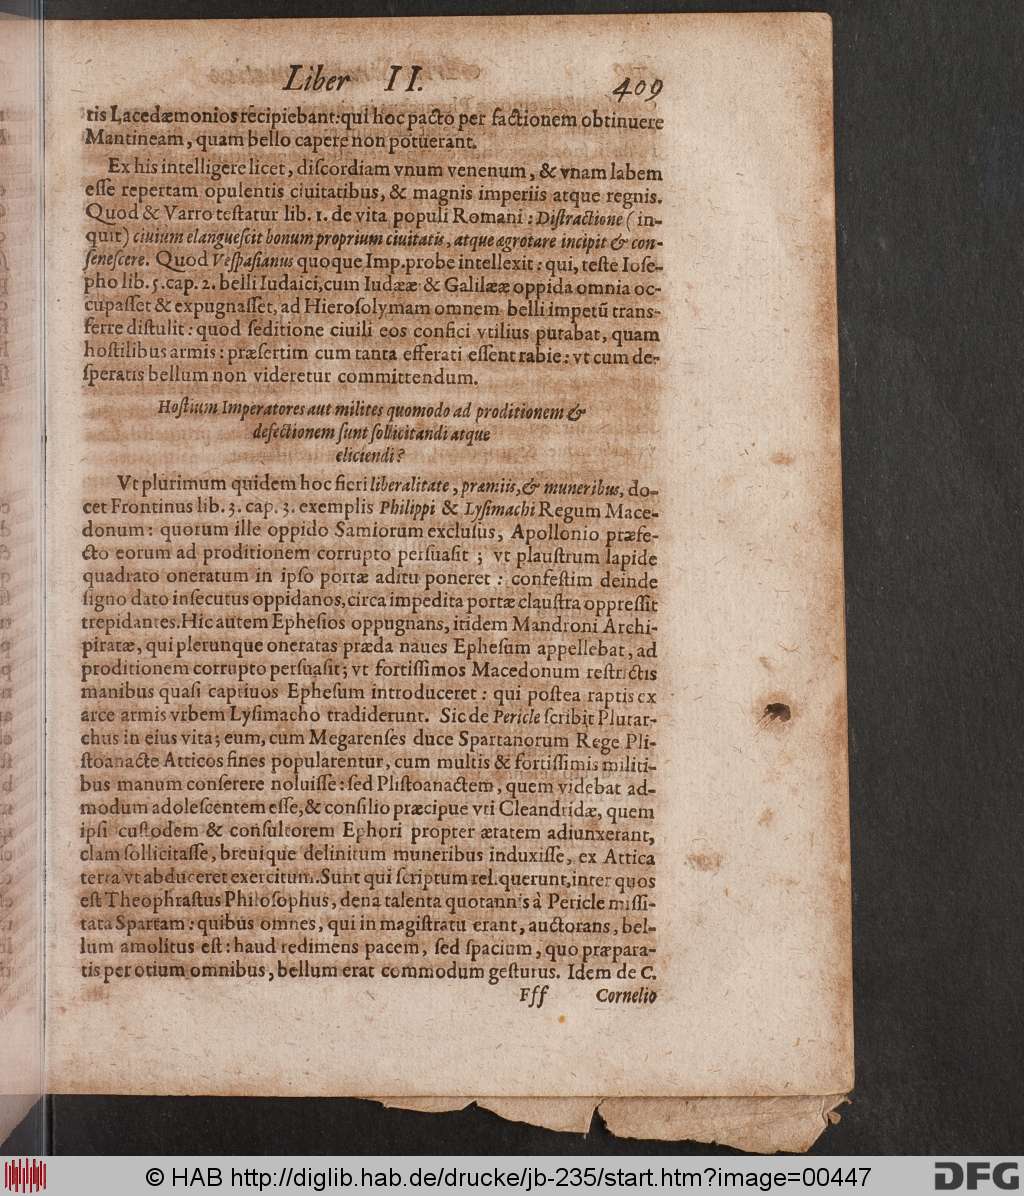 Liber II. 409
tis Lacedæmonios recipiebant: qui hoc pacto per factionem obtinuere
Mantineam, quam bello capere non potuerant.
Ex his intelligere licet, diſcordiam vnum venenum, & vnam labem
eſſe repertam opulentis ciuitatibus, & magnis imperiis atque regnis.
Quod & Varro teſtatur lib. 1. de vita populi Romani: Diſtractione (in-
quit) ciuium elangueſcit bonum proprium ciuitatis, atque ægrotare incipit & con-
ſeneſcere. Quod Veſpaſianus quoque Imp. probe intellexit: qui, teſte Ioſe-
pho lib. 5. cap. 2. belli Iudaici, cum Iudææ & Galilææ oppida omnia oc-
cupaſſet & expugnaſſet, ad Hieroſolymam omnem belli impetū trans-
ferre diſtulit: quod ſeditione ciuili eos confici vtilius putabat, quam
hoſtilibus armis: præſertim cum tanta efferati eſſent rabie: vt cum de-
ſperatis bellum non videretur committendum.
Hoſtium Imperatores aut milites quomodo ad proditionem &
defectionem ſunt ſollicitandi atque
eliciendi?
Vt plurimum quidem hoc fieri liberalitate, præmiis, & muneribus, do-
cet Frontinus lib. 3. cap. 3. exemplis Philippi & Lyſimachi Regum Mace-
donum: quorum ille oppido Samiorum excluſus, Apollonio præfe-
cto eorum ad proditionem corrupto perſuaſit; vt plauſtrum lapide
quadrato oneratum in ipſo portæ aditu poneret: confeſtim deinde
ſigno dato inſecutus oppidanos, circa impedita portæ clauſtra oppreſſit
trepidantes. Hic autem Epheſios oppugnans, itidem Mandroni Archi-
piratæ, qui plerunque oneratas præda naues Epheſum appellebat, ad
proditionem corrupto perſuaſit; vt fortiſſimos Macedonum reſtrictis
manibus quaſi captiuos Epheſum introduceret: qui poſtea raptis ex
arce armis vrbem Lyſimacho tradiderunt. Sic de Pericle ſcribit Plutar-
chus in eius vita; eum, cum Megarenſes duce Spartanorum Rege Pli-
ſtoanacte Atticos fines popularentur, cum multis & fortiſſimis militi-
bus manum conſerere noluiſſe: ſed Pliſtoanactem, quem videbat ad-
modum adoleſcentem eſſe, & conſilio præcipue vti Cleandridæ, quem
ipſi cuſtodem & conſultorem Ephori propter ætatem adiunxerant,
clam ſollicitaſſe, breuique delinitum muneribus induxiſſe, ex Attica
terra vt abduceret exercitum. Sunt qui ſcriptum relquerunt, inter quos
eſt Theophraſtus Philoſophus, dena talenta quotannis à Pericle miſſi-
tata Spartam: quibus omnes, qui in magiſtratu erant, auctorans, bel-
lum amolitus eſt: haud redimens pacem, ſed ſpacium, quo præpara-
tis per otium omnibus, bellum erat commodum geſturus. Idem de C.
Fff Cornelio
© HAB http://diglib.hab.de/drucke/jb-235/start.htm?image=00447
DFG